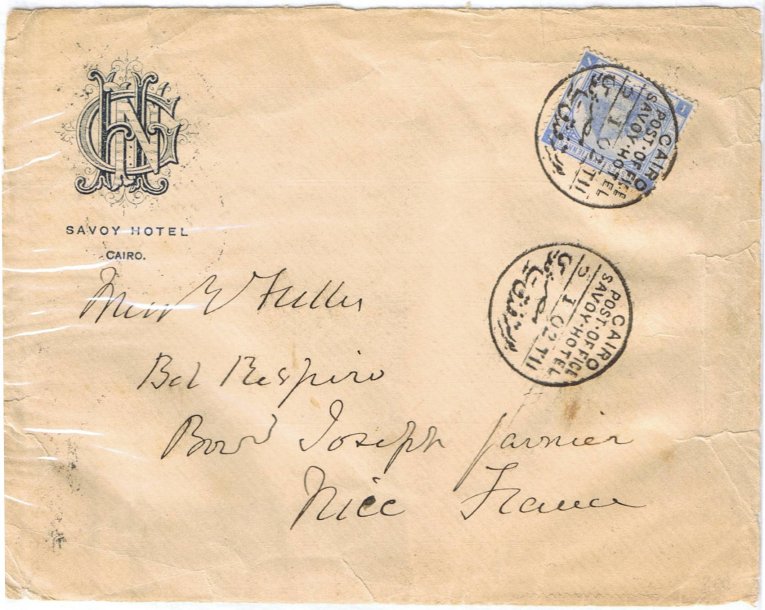 SAVOY HOTEL
CAIRO.
CAIRO
POST-OFFICE
SAVOY-HOTEL
I 02 T11
CAIRO
POST-OFFICE
SAVOY-HOTEL
I 02 T11
Miss Fuller
Bel Respiro
Boud Joseph Garnier
Nice France